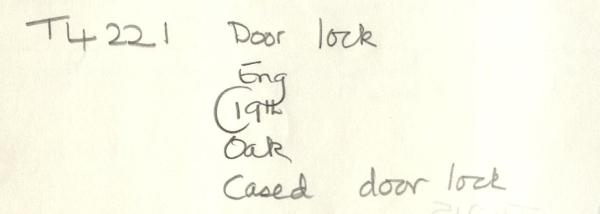 T4221 Door lock
Eng
C19th
Oak
Cased door lock